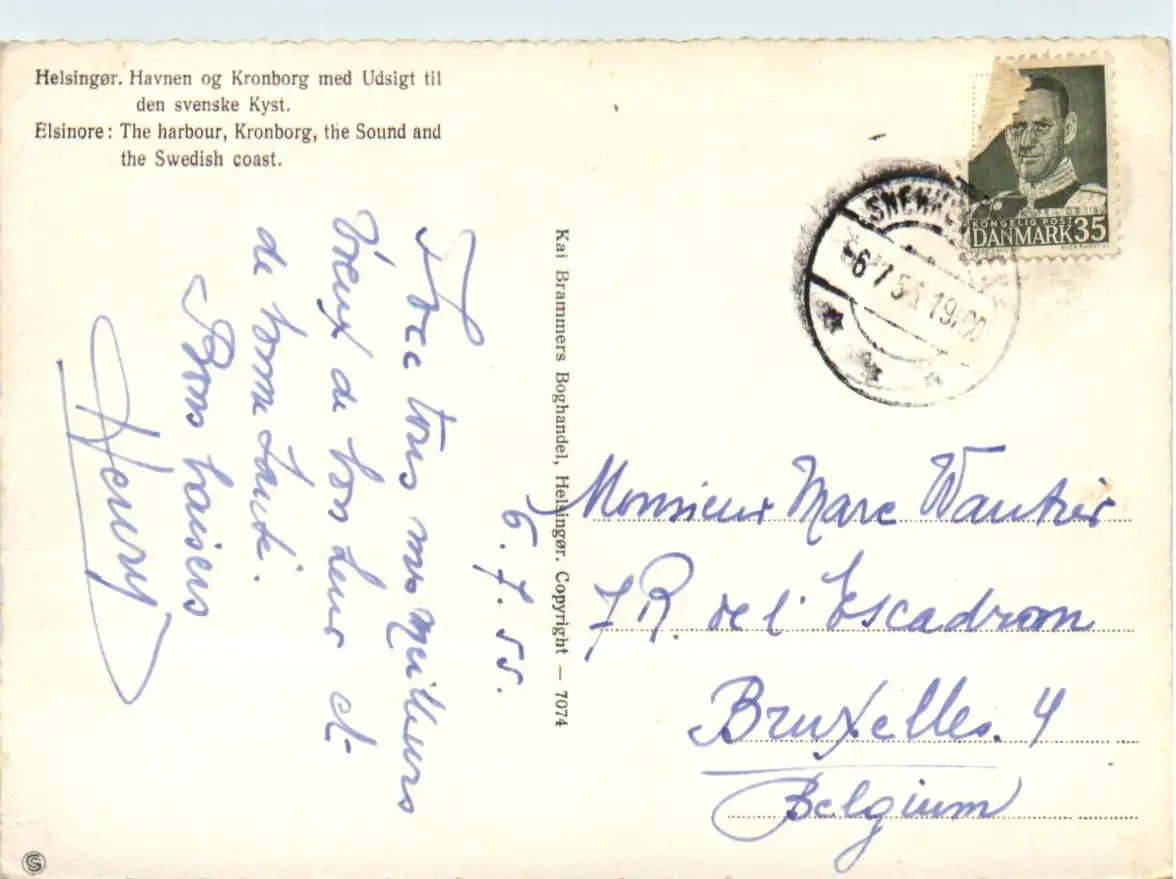 Helsingør. Havnen og Kronborg med Udsigt til
den svenske Kyst.
Elsinore: The harbour, Kronborg, the Sound and
the Swedish coast.
6.7.55.
tous mes Meilleurs
Voeux de bonheur et
de bonne Santé.
Bons baisers
Henry
Kai Brammers Boghandel, Helsingør. Copyright — 7074
KONGELIG POST
DANMARK 35
6 7 55 19.00
Monsieur Marc Wautier
7 R. de l'Escadron
Bruxelles. 4
Belgium
S